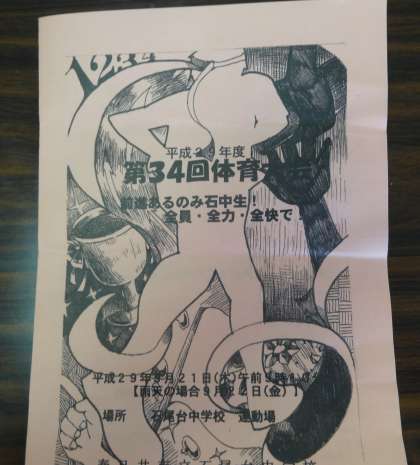 平成29年度
第34回体育大会
前進あるのみ石中生！
全員・全力・全快で！
平成29年9月21日(木)午前
【雨天の場合9月22日(金)】
場所　石尾台中学校　運動場
春日井市立石尾台中学校